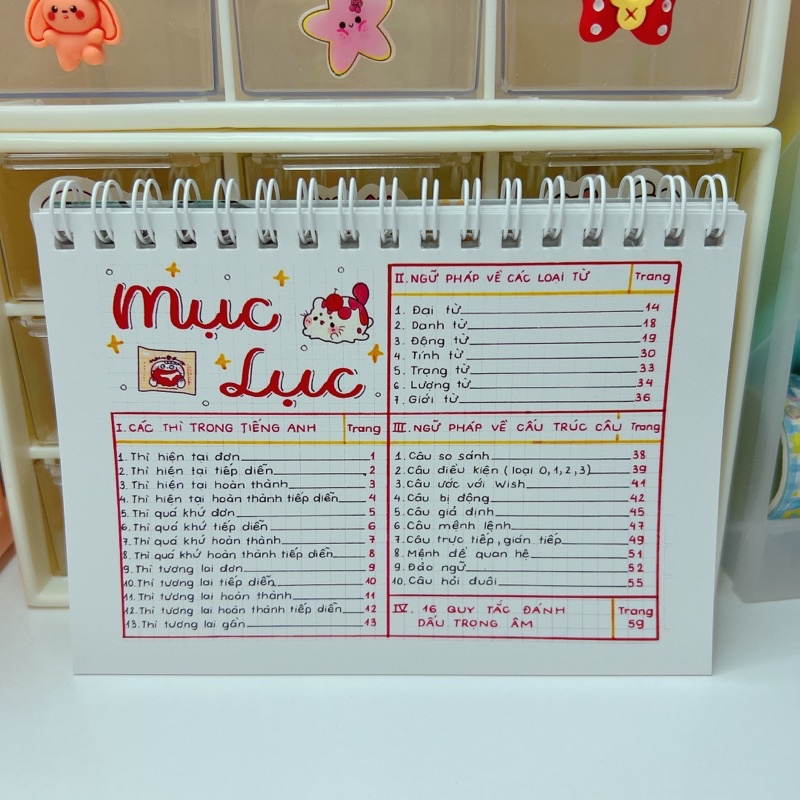 Mục
Lục
I. CÁC THÌ TRONG TIẾNG ANH Trang
1. Thì hiện tại đơn 1
2. Thì hiện tại tiếp diễn 2
3. Thì hiện tại hoàn thành 3
4. Thì hiện tại hoàn thành tiếp diễn 4
5. Thì quá khứ đơn 5
6. Thì quá khứ tiếp diễn 6
7. Thì quá khứ hoàn thành 7
8. Thì quá khứ hoàn thành tiếp diễn 8
9. Thì tương lai đơn 9
10. Thì tương lai tiếp diễn 10
11. Thì tương lai hoàn thành 11
12. Thì tương lai hoàn thành tiếp diễn 12
13. Thì tương lai gần 13
II. NGỮ PHÁP VỀ CÁC LOẠI TỪ Trang
1. Đại từ 14
2. Danh từ 18
3. Động từ 19
4. Tính từ 30
5. Trạng từ 33
6. Lượng từ 34
7. Giới từ 36
III. NGỮ PHÁP VỀ CẤU TRÚC CÂU Trang
1. Câu so sánh 38
2. Câu điều kiện (loại 0,1,2,3) 39
3. Câu ước với Wish 41
4. Câu bị động 42
5. Câu giả định 45
6. Câu mệnh lệnh 47
7. Câu trực tiếp, gián tiếp 49
8. Mệnh đề quan hệ 51
9. Đảo ngữ 52
10. Câu hỏi đuôi 55
IV. 16 QUY TẮC ĐÁNH Trang
DẤU TRỌNG ÂM 59